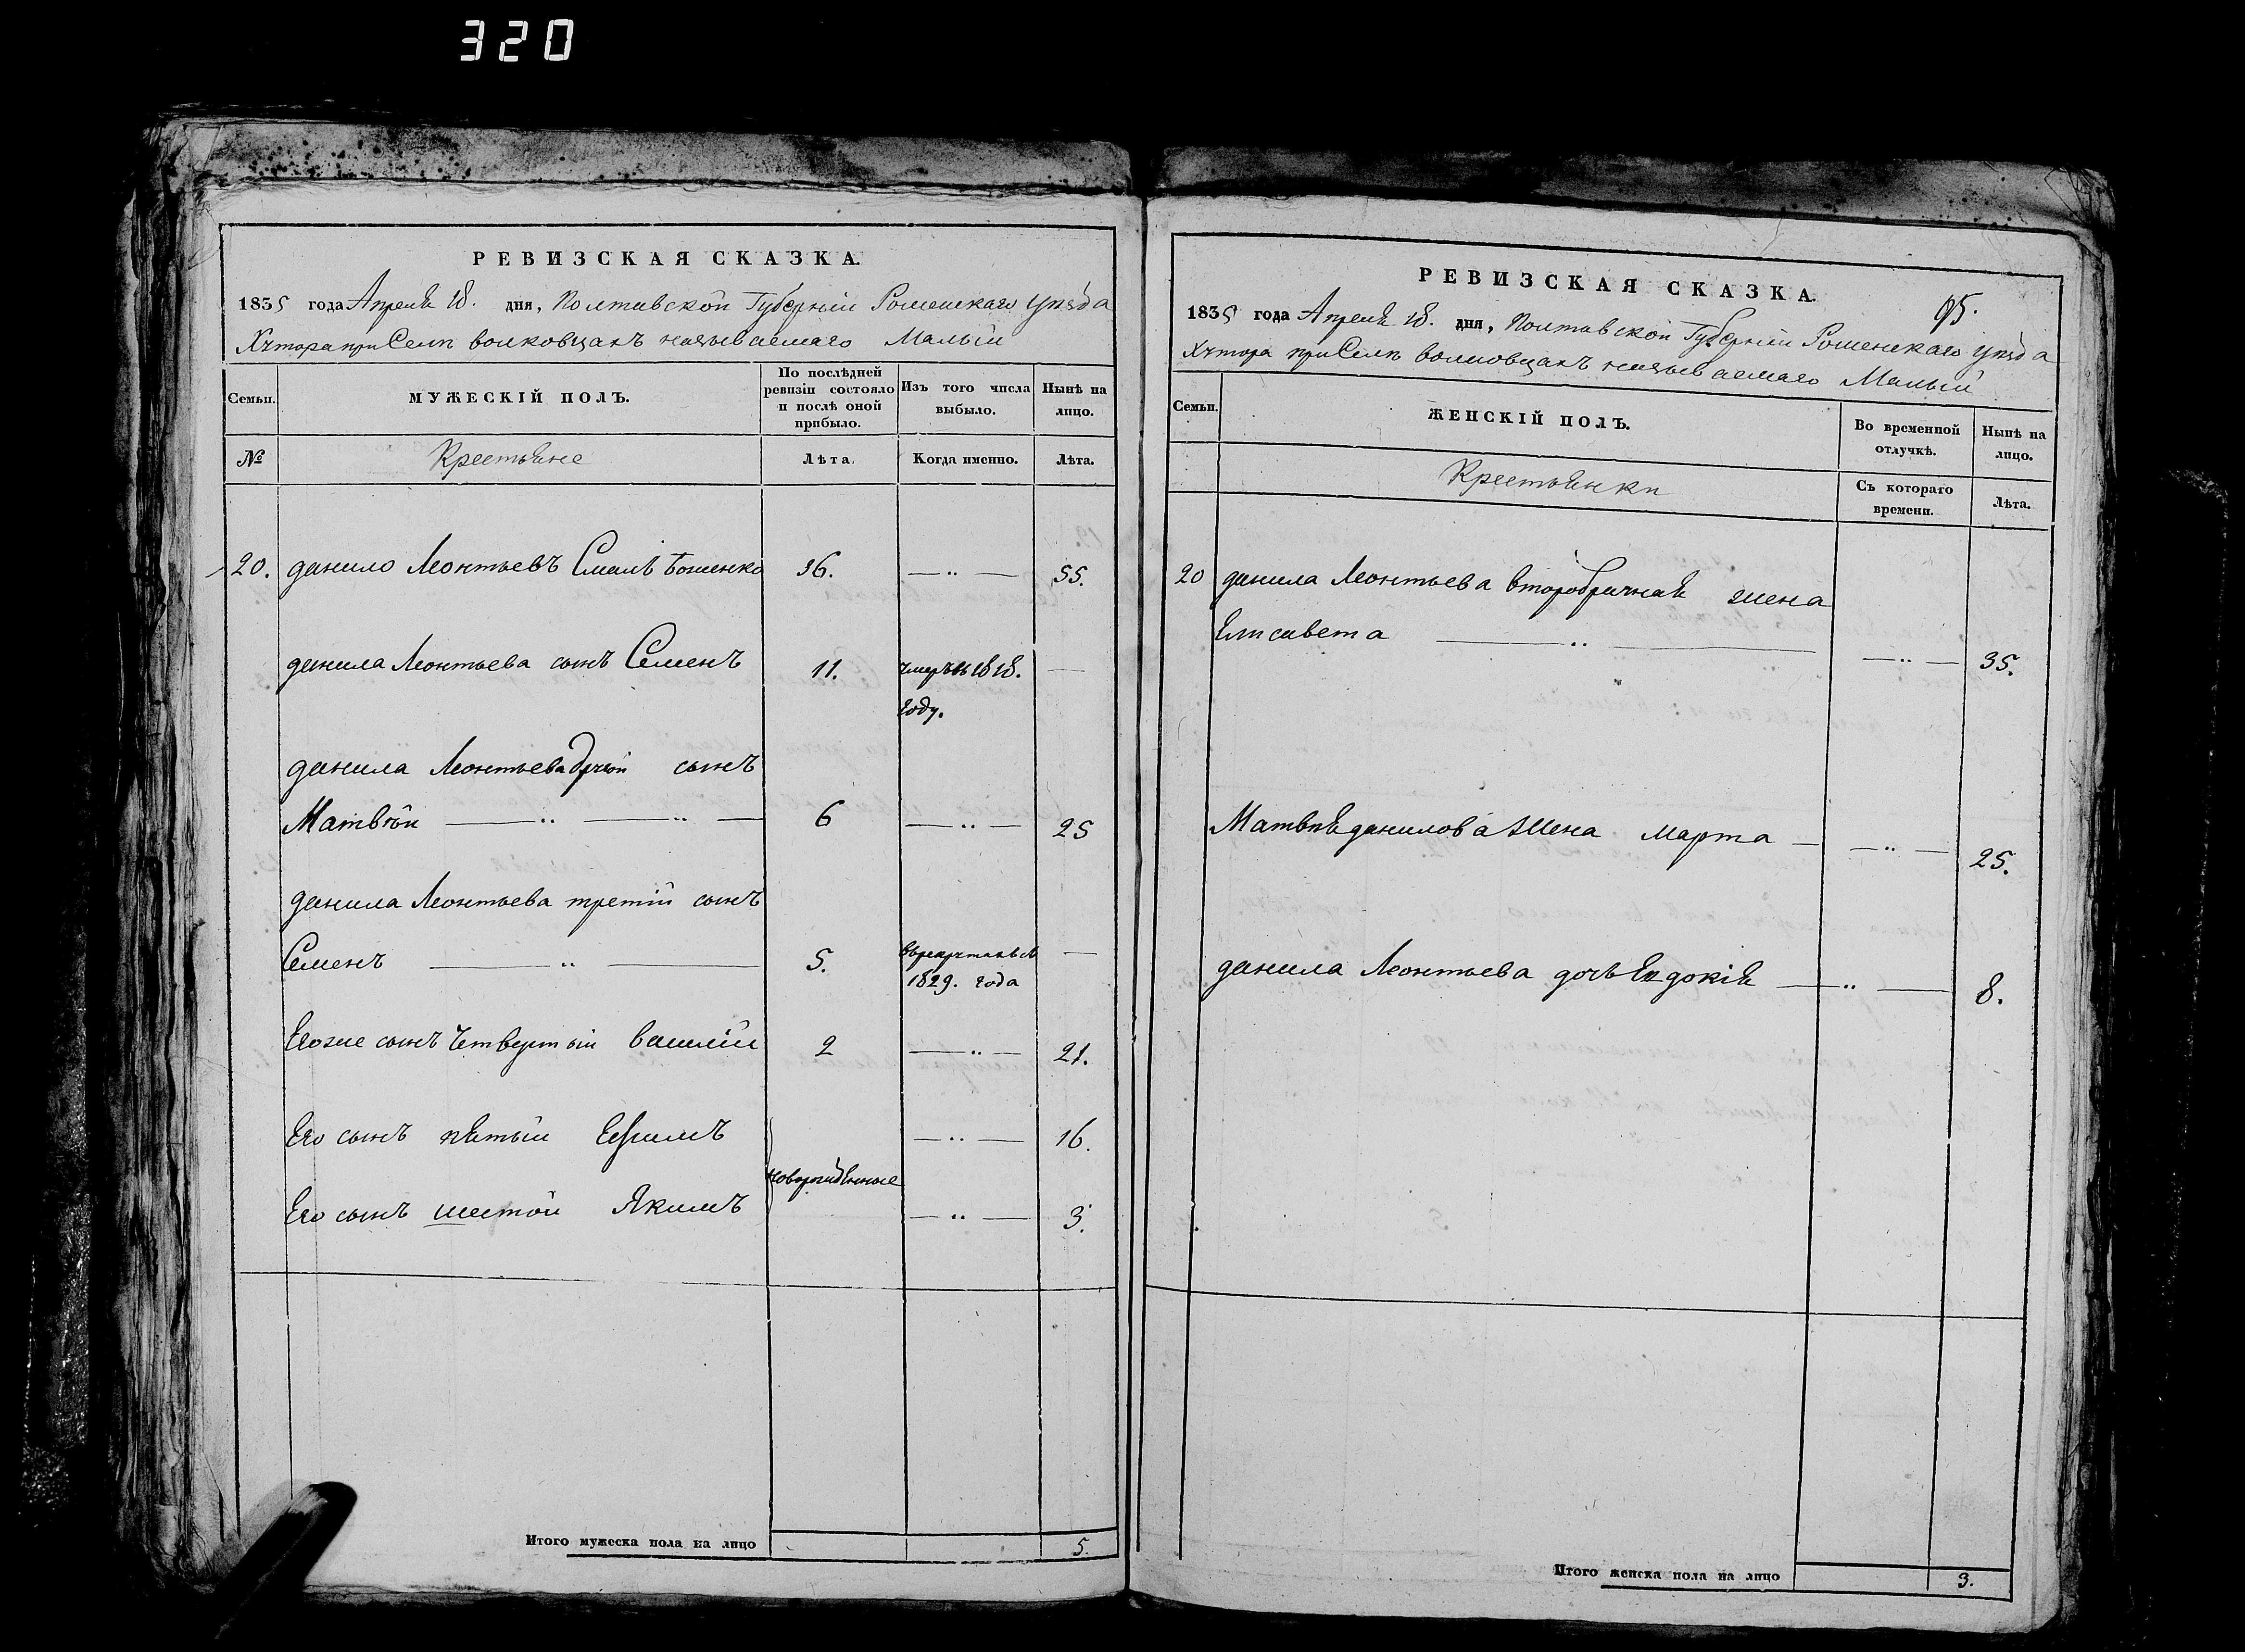 320
РЕВИЗСКАЯ СКАЗКА.
1835 года Апреля 18. дня, Полтавской Губерніи Роменскаго уѣзда
Хутора при Селѣ волковцахъ называемаго Малый
Семьи.
МУЖЕСКІЙ ПОЛЪ.
По послѣдней ревизіи состояло и послѣ оной прибыло.
Изъ того числа выбыло.
Нынѣ на лицо.
№
Крестьяне
Лѣта.
Когда именно.
Лѣта.
20. данило Леонтьевъ 36. —„— 55.
данила Леонтьева сынъ Семенъ 11. умеръ въ 1818. —
году.
данила Леонтьева другой сынъ
Матвѣй —„— —„— 6 —„— 25
данила Леонтьева третій сынъ
Семенъ —„— 5. —
1829. года
Его же сынъ четвертый василій 2 —„— 21.
Его сынъ пятый Ефимъ —„— 16.
новорожденные
Его сынъ шестой Якимъ —„— 3.
Итого мужеска пола на лицо 5.
РЕВИЗСКАЯ СКАЗКА.
95.
1835 года Апреля 18. дня, Полтавской Губерніи Роменскаго уѣзда
Хутора при Селѣ волковцахъ называемаго Малый
Семьи.
ЖЕНСКІЙ ПОЛЪ.
Во временной отлучкѣ.
Нынѣ на лицо.
Крестьянки
Съ котораго времени.
Лѣта.
20 данила Леонтьева второбрачная жена
Елисавета —„— —„— 35.
Матвѣя данилова жена Марта — —„— 25.
данила Леонтьева дочь Евдокія —„— 8.
Итого женска пола на лицо 3.